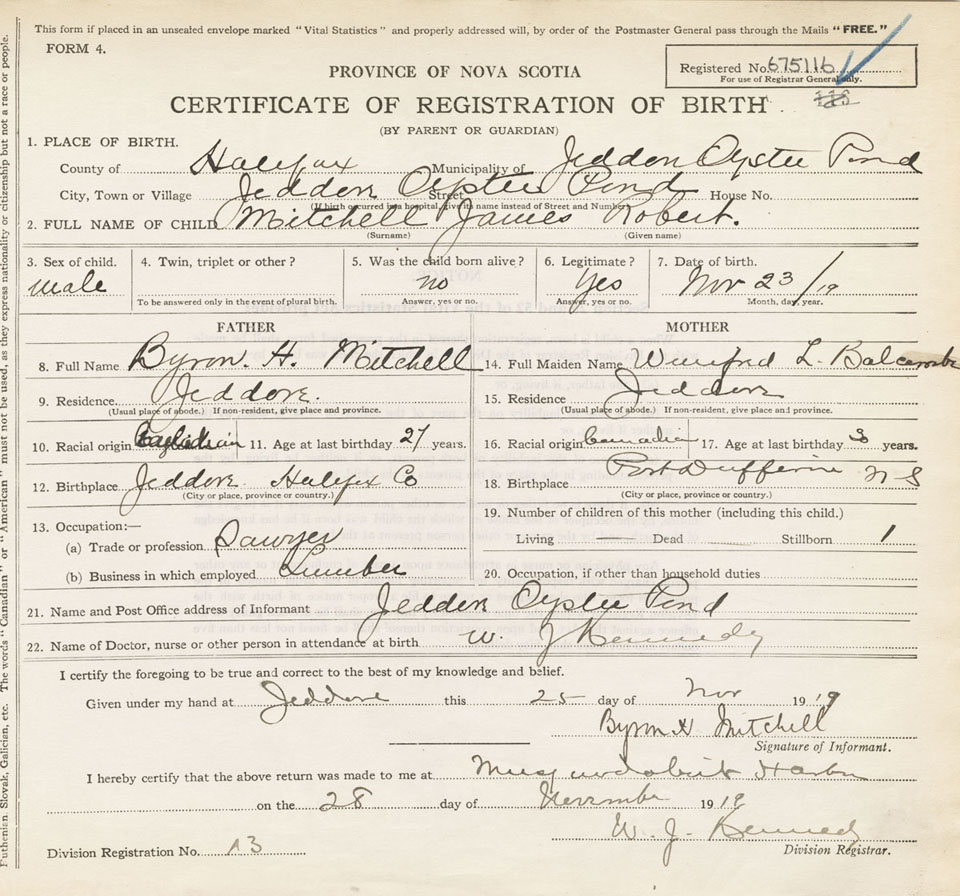 This form if placed in an unsealed envelope marked "Vital Statistics" and properly addressed will, by order of the Postmaster General pass through the Mails "FREE."
FORM 4.
Registered No. 675116
For use of Registrar General only.
PROVINCE OF NOVA SCOTIA
CERTIFICATE OF REGISTRATION OF BIRTH
(BY PARENT OR GUARDIAN)
1. PLACE OF BIRTH.
County of Halifax Municipality of Jeddore Oyster Pond
City, Town or Village Jeddore Oyster Pond Street House No.
(If birth occurred in a hospital, give its name instead of Street and Number)
2. FULL NAME OF CHILD Mitchell James Robert.
(Surname) (Given name)
3. Sex of child. male
4. Twin, triplet or other?
To be answered only in the event of plural birth.
5. Was the child born alive? no
Answer, yes or no.
6. Legitimate? Yes
Answer, yes or no.
7. Date of birth. Nov 23/19
Month, day, year.
FATHER
8. Full Name Byron. H. Mitchell
9. Residence. Jeddore.
(Usual place of abode.) If non-resident, give place and province.
10. Racial origin 11. Age at last birthday 27 years.
12. Birthplace Jeddore Halifax Co
(City or place, province or country.)
13. Occupation:—
(a) Trade or profession Sawyer
(b) Business in which employed Lumber
MOTHER
14. Full Maiden Name Winifred L. Balcombe
15. Residence Jeddore
(Usual place of abode.) If non-resident, give place and province.
16. Racial origin Canadian 17. Age at last birthday years.
18. Birthplace Port Dufferin N S
(City or place, province or country.)
19. Number of children of this mother (including this child.)
Living — Dead Stillborn 1
20. Occupation, if other than household duties
21. Name and Post Office address of Informant Jeddore Oyster Pond
22. Name of Doctor, nurse or other person in attendance at birth W. J Kennedy
I certify the foregoing to be true and correct to the best of my knowledge and belief.
Given under my hand at Jeddore this 25 day of Nov 1919
Byron H Mitchell
Signature of Informant.
I hereby certify that the above return was made to me at Musquodoboit Harbor
on the 28 day of November 1919
W. J. Kennedy
Division Registrar.
Division Registration No. 13
Ruthenian, Slovak, Galician, etc. The words "Canadian" or "American" must not be used, as they express nationality or citizenship but not a race or people.